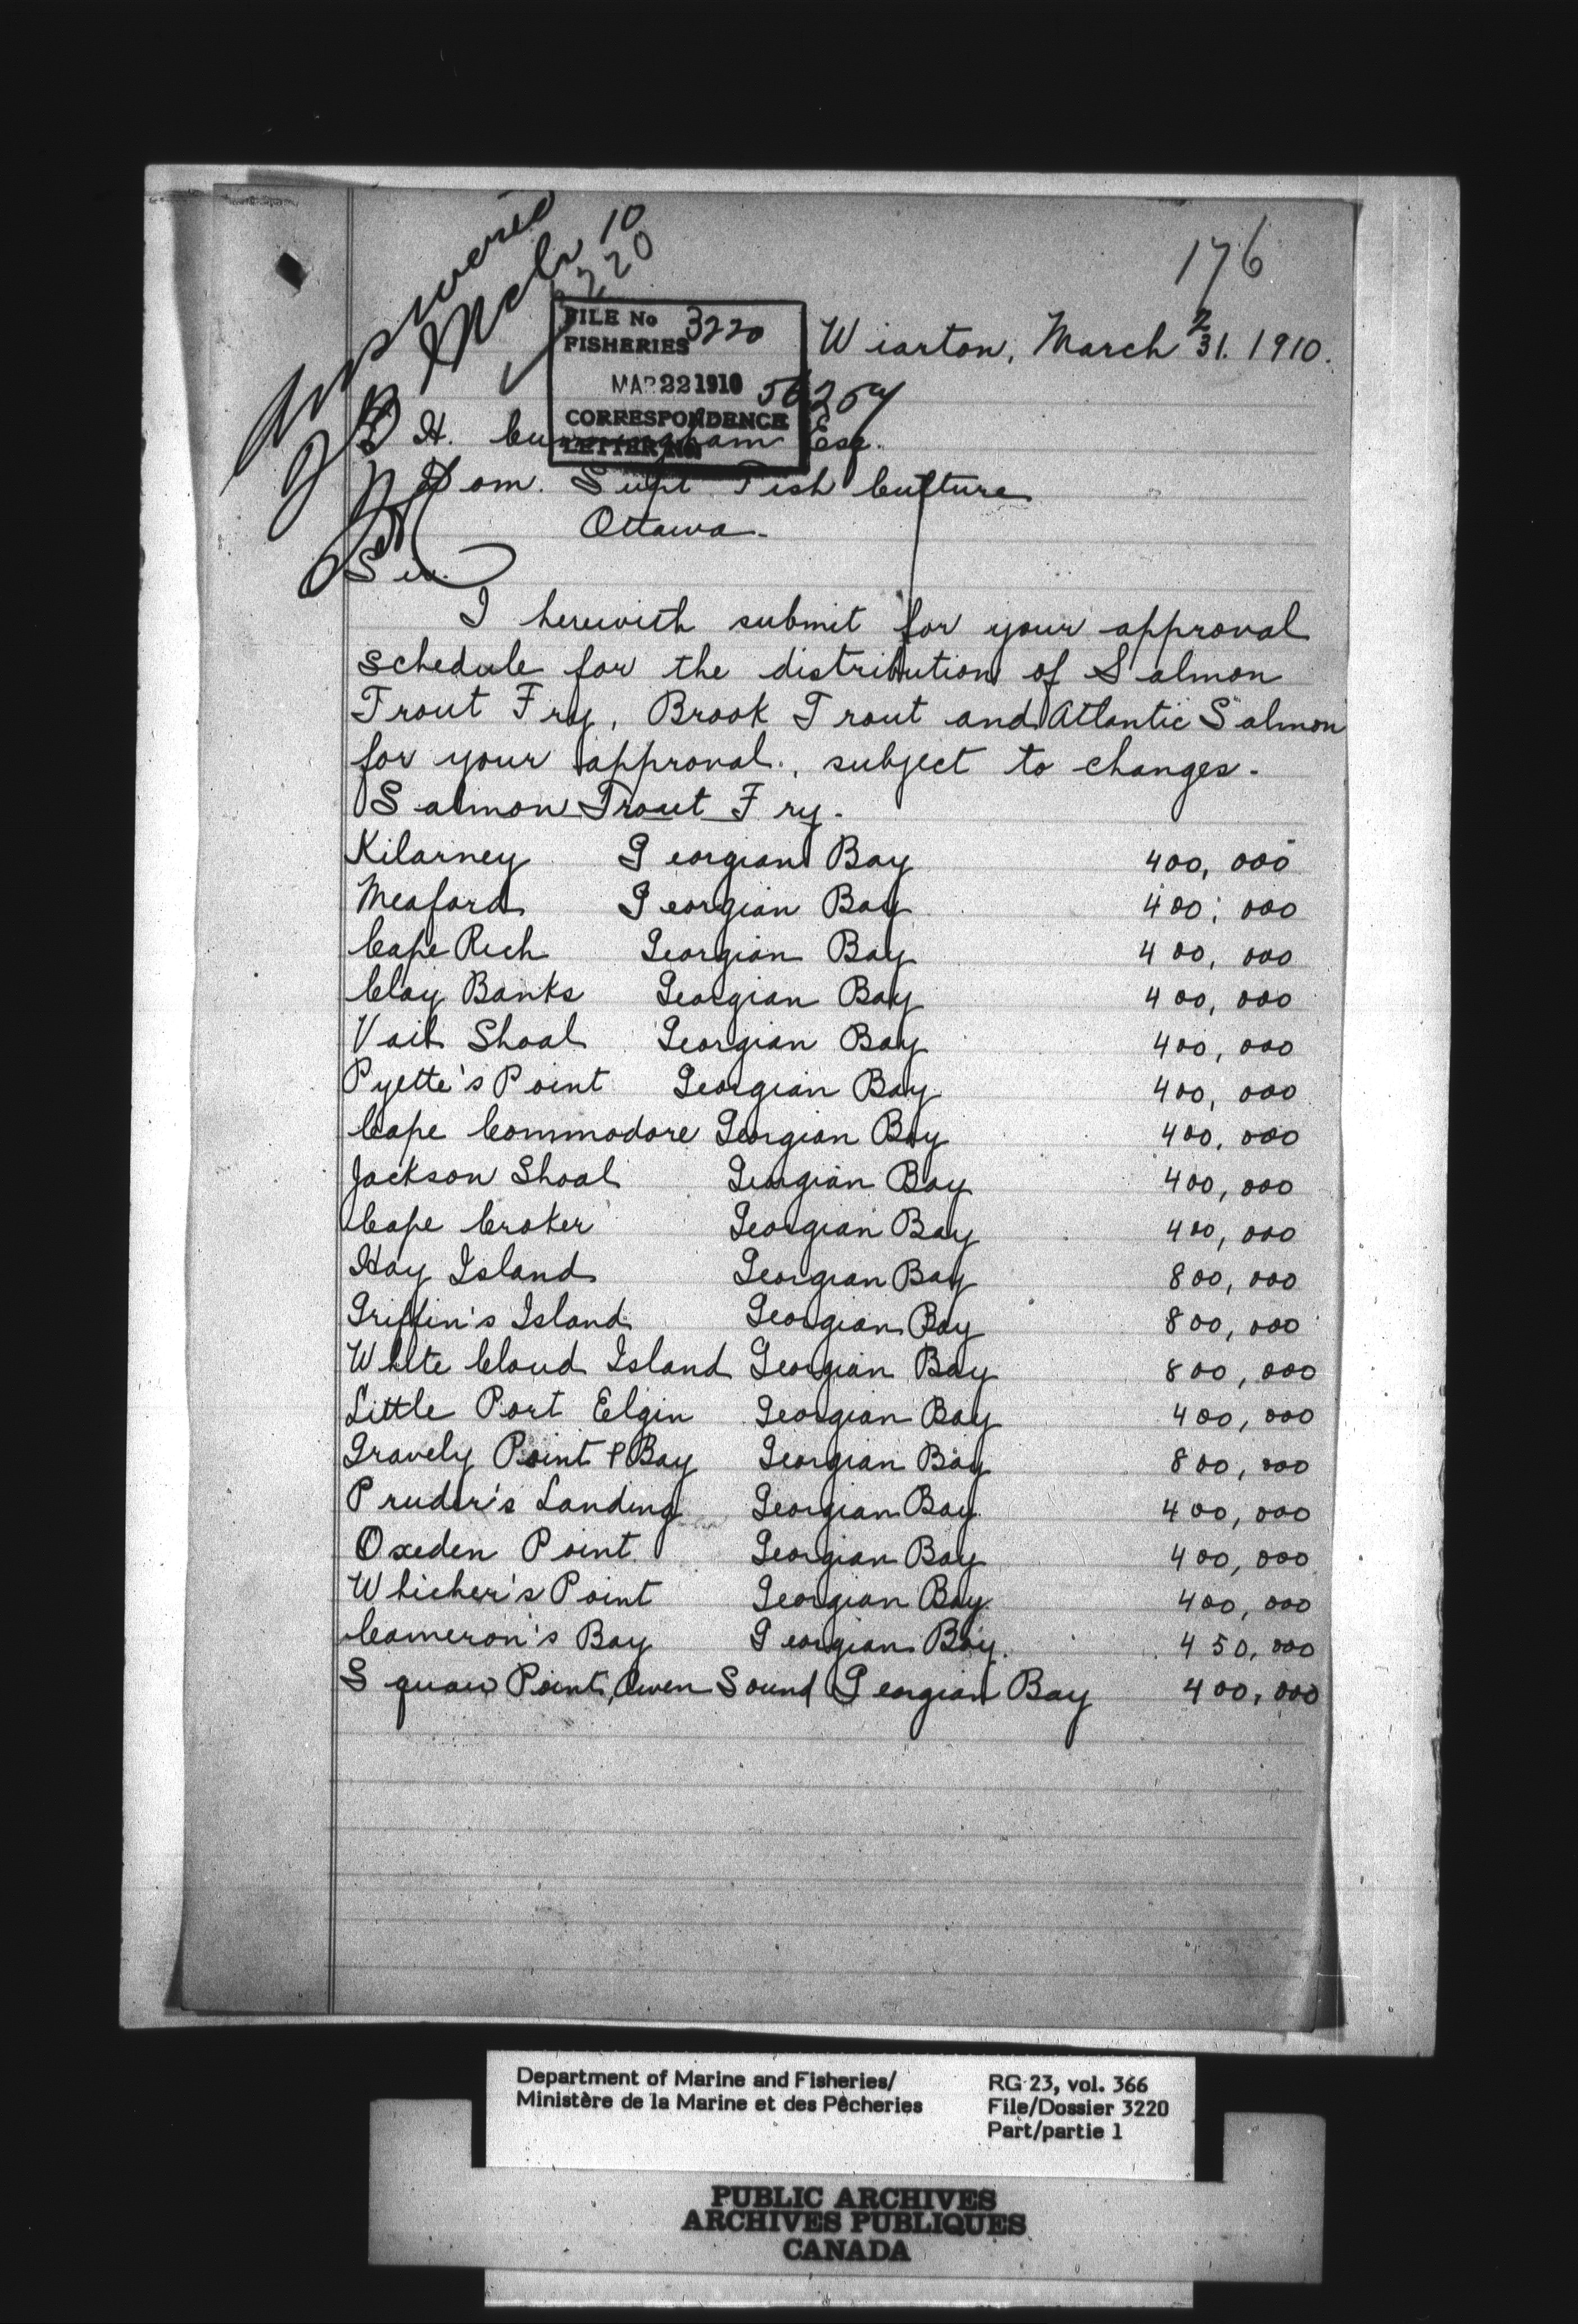 176
Answered
Mch 10
3220
FILE No 3220
FISHERIES
MAR 22 1910
CORRESPONDENCE
LETTER No
Wiarton, March 31. 1910.
2
F. H. Cunningham Esq.
Dom. Supt Fish Culture
Ottawa.
Sir.
I herewith submit for your approval
schedule for the distribution of Salmon
Trout Fry, Brook Trout and Atlantic Salmon
for your approval., subject to changes.
Salmon Trout Fry.
Kilarney Georgian Bay 400,000
Meaford Georgian Bay 400,000
Cape Rich Georgian Bay 400,000
Clay Banks Georgian Bay 400,000
Vail Shoal Georgian Bay 400,000
Pyette's Point Georgian Bay 400,000
Cape Commodore Georgian Bay 400,000
Jackson Shoal Georgian Bay 400,000
Cape Croker Georgian Bay 400,000
Hay Island Georgian Bay 800,000
Griffin's Island Georgian Bay 800,000
White Cloud Island Georgian Bay 800,000
Little Port Elgin Georgian Bay 400,000
Gravely Point & Bay Georgian Bay 800,000
Pruder's Landing Georgian Bay 400,000
Oxeden Point Georgian Bay 400,000
Whicher's Point Georgian Bay 400,000
Cameron's Bay Georgian Bay. 450,000
Squaw Point, Owen Sound Georgian Bay 400,000
Department of Marine and Fisheries/
Ministère de la Marine et des Pêcheries
RG 23, vol. 366
File/Dossier 3220
Part/partie 1
PUBLIC ARCHIVES
ARCHIVES PUBLIQUES
CANADA